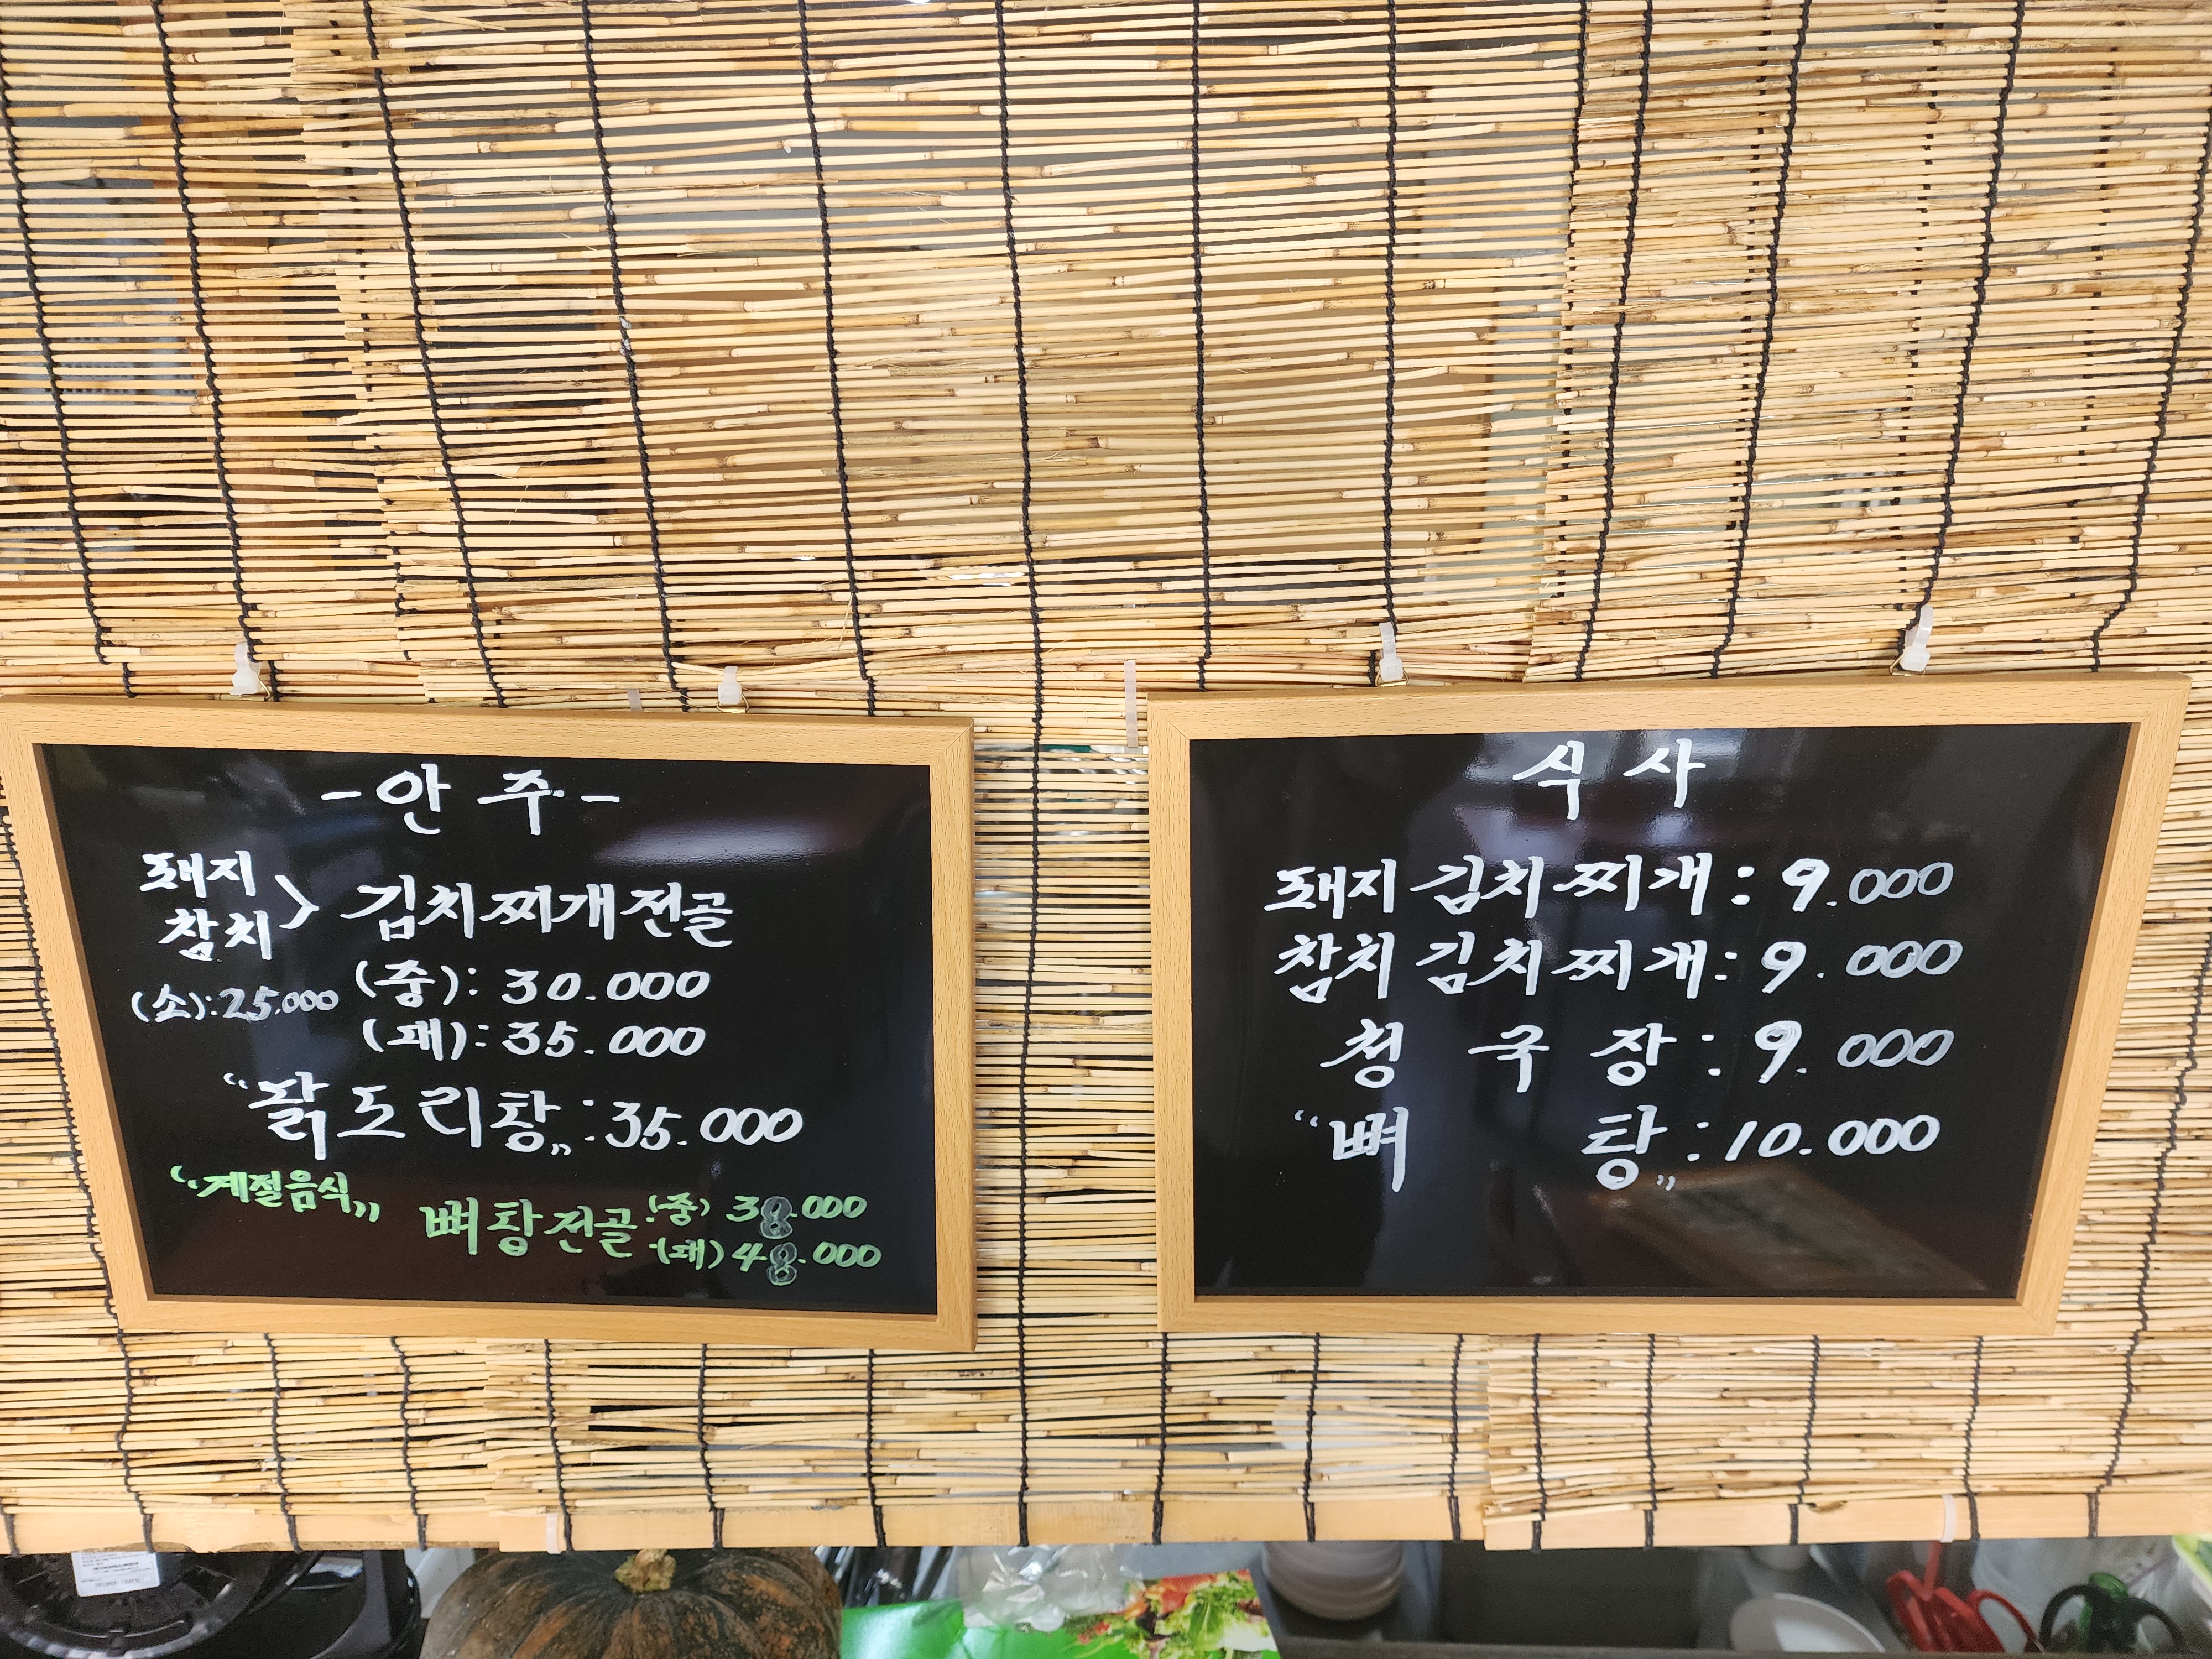 -안주-
돼지
참치 > 김치찌개전골
(소):25.000 (중): 30.000
(대): 35.000
"닭도리탕„:35.000
"계절음식„
뼈탕전골 (중) 38.000
(대) 48.000
식사
돼지김치찌개: 9.000
참치김치찌개: 9.000
청국장: 9.000
"뼈탕„: 10.000